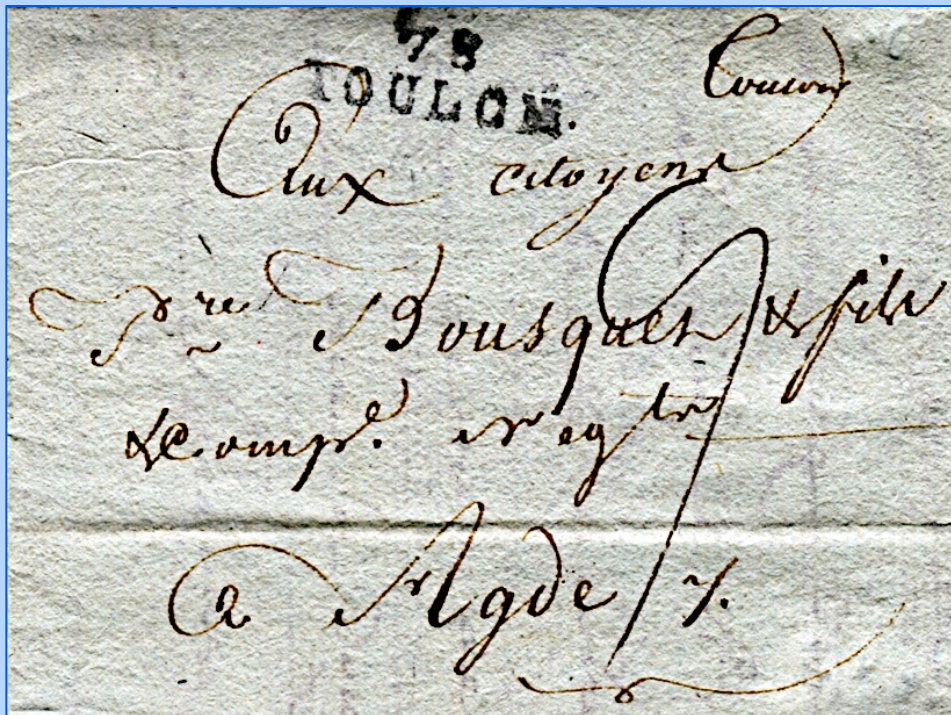 78
TOULON.
Aux citoyens
Pre Bousquet & fils
& Compe. negts
a Agde